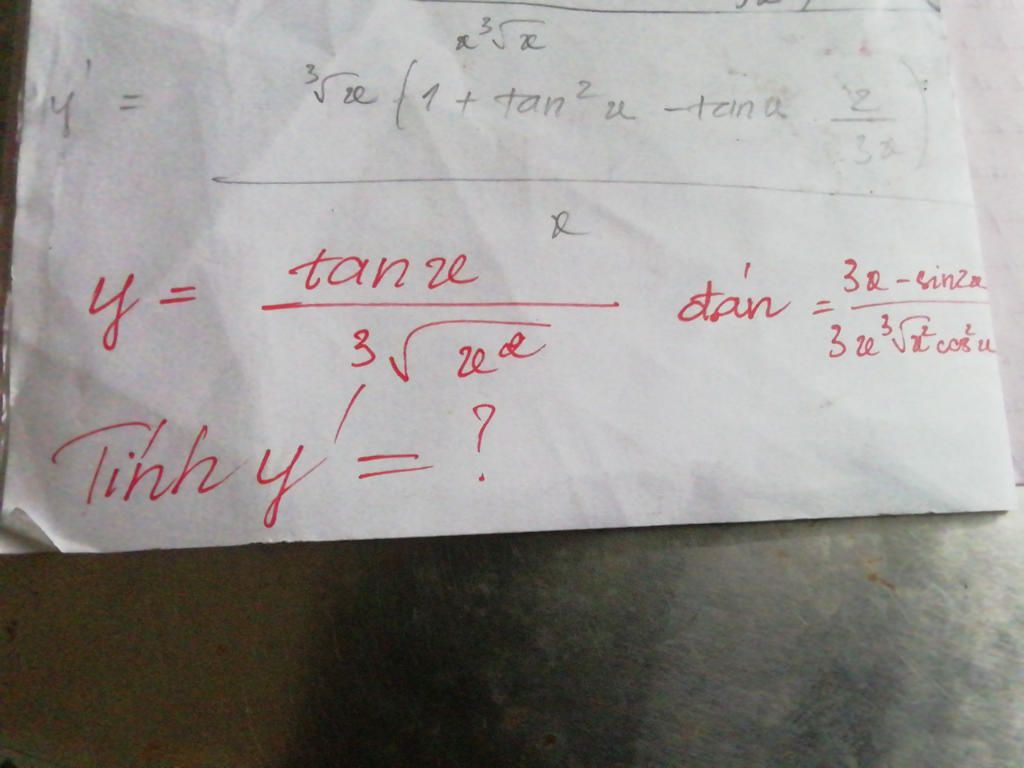 x ³√x
y' = ³√x (1 + tan² x - tan x 2/3x)
x
y = tan x / ³√x² đán = 3x - sin2x / 3x ³√x² cos² x
Tính y' = ?